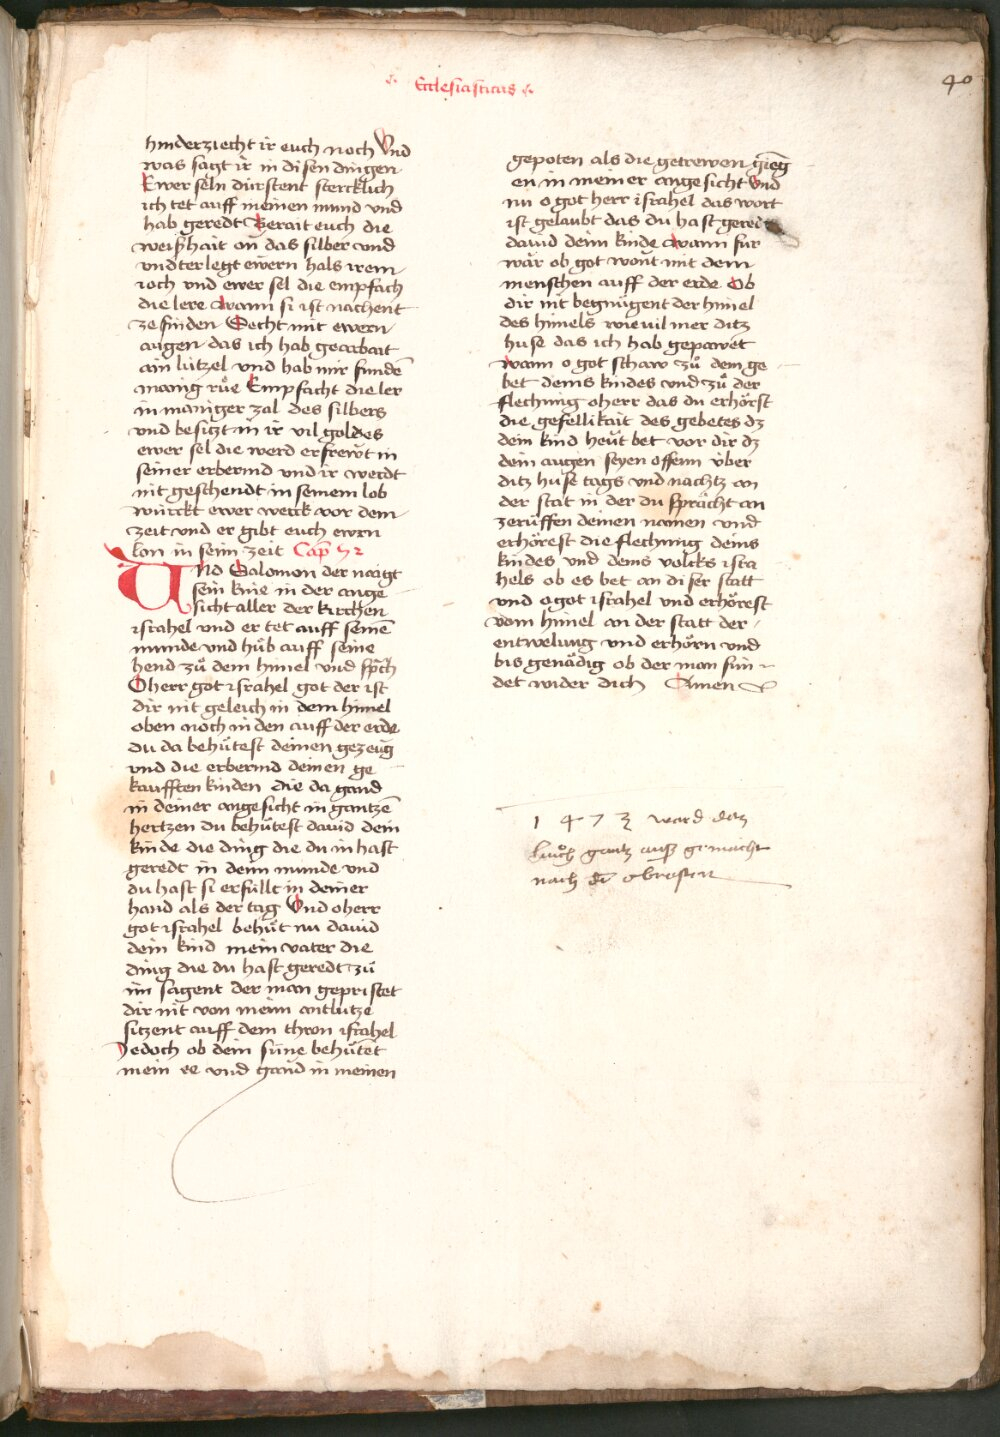 Ecclesiasticus
40
hinderziecht ir euch noch Vnd
was sagt ir in disen dingen
Ewer seln dürstent stercklich
ich tet auff meinen mund vnd
hab geredt Berait euch die
weißhait on das silber vnd
vndterlegt ewern hals irem
ioch vnd ewer sel die empfach
die lere wann si ist nachent
ze finden Secht mit ewern
augen das ich hab gearbait
ain lützel vnd hab mir funden̄
manig rue Empfacht die ler
in maniger zal des silbers
vnd besitzt in ir vil goldes
ewer sel die werd erfrewt in
seiner erbermd vnd ir werdt
nit geschendt in seinem lob
würckt ewer werck vor dem
zeit vnd er gibt euch ewrn
lon in seinn zeit Cap̄ 52
Vnd Salomon der naigt
sein knie in der ange
sicht aller der kirchen
israhel vnd er tet auff seinē
munde vnd hůb auff seine
hend zů dem himel vnd sprach
O herr got israhel got der ist
dir nit geleich in dem himel
oben noch niden auff der erde
du da behütest deinen gezeug
vnd die erbermd deinen ge
kaufften kinden die da gand
in deiner angesicht in gantzē
hertzen du behütest dauid dein
kinde die ding die du in hast
geredt in deinn munde vnd
du hast si erfüllt in deiner
hand als der tag Vnd o herr
got israhel behüt nu dauid
dein kind mein vater die
ding die du hast geredt zů
im sagent der man gepristet
dir nit von meinn antlutze
sitzent auff dem thron israhel
Jedoch ob dein süne behütet
mein ee vnd gand in meinen
gepoten als die getrewen gieng
en in meiner angesicht Vnd
nu o got herr israhel das wort
ist gelaubt das du hast geredt
dauid deinn kinde wann für
war ob got wont mit dem
menschen auff der erde Ob
dir nit begnügent der himel
des himels wie vil mer ditz
huse das ich hab gepawet
wann o got schaw zů dem ge
bet deins kindes vnd zů der
flechung o herr das du erhörst
die gefellikait des gebetes dz
dein kind heüt bet vor dir dz
dein augen seyen offenn über
ditz huse tags vnd nachtz an
der stat in der du sprächt an
zerüffen deinen namen vnd
erhörest die flechung deins
kindes vnd deins volcks isra
hels ob es bet an diser statt
vnd o got israhel vnd erhörest
vom himel an der statt der
entwelung vnd erhörn vnd
bis genädig ob der man sün
det wider dich Amen
1473 ward daz
buoch gantz auß gemacht
nach